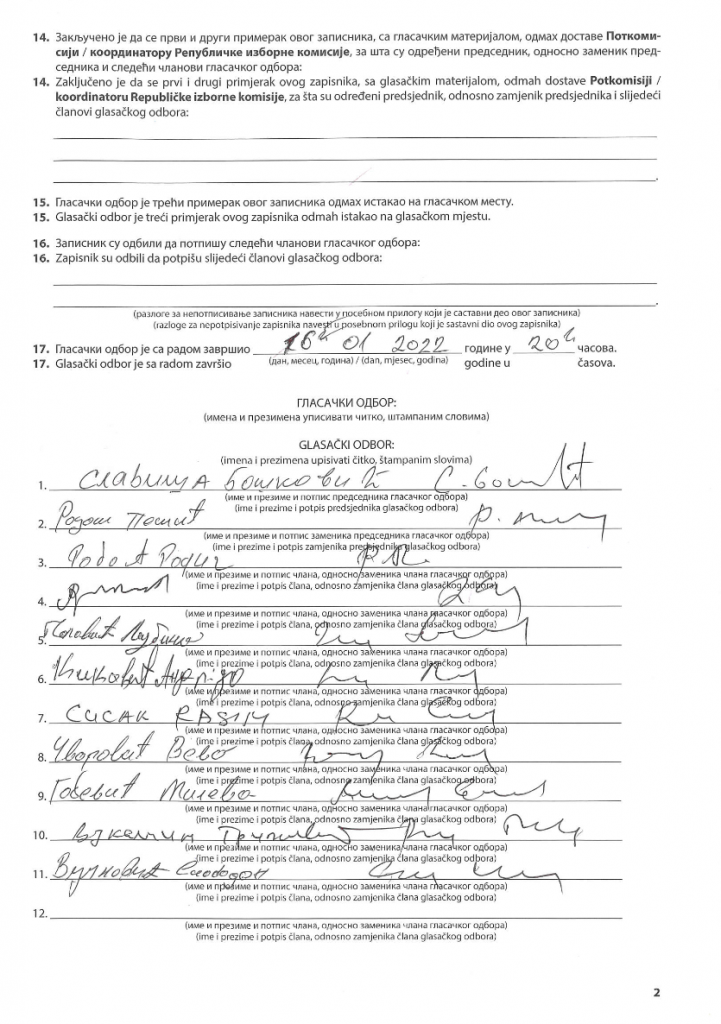 14. Закључено је да се први и други примерак овог записника, са гласачким материјалом, одмах доставе Поткоми-
сији / координатору Републичке изборне комисије, за шта су одређени председник, односно заменик пред-
седника и следећи чланови гласачког одбора:
14. Zaključeno je da se prvi i drugi primjerak ovog zapisnika, sa glasačkim materijalom, odmah dostave Potkomisiji /
koordinatoru Republičke izborne komisije, za šta su određeni predsjednik, odnosno zamjenik predsjednika i slijedeći
članovi glasačkog odbora:
15. Гласачки одбор је трећи примерак овог записника одмах истакао на гласачком месту.
15. Glasački odbor je treći primjerak ovog zapisnika odmah istakao na glasačkom mjestu.
16. Записник су одбили да потпишу следећи чланови гласачког одбора:
16. Zapisnik su odbili da potpišu slijedeći članovi glasačkog odbora:
(разлоге за непотписивање записника навести у посебном прилогу који је саставни део овог записника)
(razloge za nepotpisivanje zapisnika navesti u posebnom prilogu koji je sastavni dio ovog zapisnika)
17. Гласачки одбор је са радом завршио 16 01 2022 године у 20 часова.
17. Glasački odbor je sa radom završio (дан, месец, година) / (dan, mjesec, godina) godine u časova.
ГЛАСАЧКИ ОДБОР:
(имена и презимена уписивати читко, штампаним словима)
GLASAČKI ODBOR:
(imena i prezimena upisivati čitko, štampanim slovima)
1. Славица Бошковић
(име и презиме и потпис председника гласачког одбора)
(ime i prezime i potpis predsjednika glasačkog odbora)
2. Радош
(име и презиме и потпис заменика председника гласачког одбора)
(ime i prezime i potpis zamjenika predsjednika glasačkog odbora)
3.
(име и презиме и потпис члана, односно заменика члана гласачког одбора)
(ime i prezime i potpis člana, odnosno zamjenika člana glasačkog odbora)
4.
(име и презиме и потпис члана, односно заменика члана гласачког одбора)
(ime i prezime i potpis člana, odnosno zamjenika člana glasačkog odbora)
5.
(име и презиме и потпис члана, односно заменика члана гласачког одбора)
(ime i prezime i potpis člana, odnosno zamjenika člana glasačkog odbora)
6.
(име и презиме и потпис члана, односно заменика члана гласачког одбора)
(ime i prezime i potpis člana, odnosno zamjenika člana glasačkog odbora)
7. СИСАК
(име и презиме и потпис члана, односно заменика члана гласачког одбора)
(ime i prezime i potpis člana, odnosno zamjenika člana glasačkog odbora)
8.
(име и презиме и потпис члана, односно заменика члана гласачког одбора)
(ime i prezime i potpis člana, odnosno zamjenika člana glasačkog odbora)
9.
(име и презиме и потпис члана, односно заменика члана гласачког одбора)
(ime i prezime i potpis člana, odnosno zamjenika člana glasačkog odbora)
10.
(име и презиме и потпис члана, односно заменика члана гласачког одбора)
(ime i prezime i potpis člana, odnosno zamjenika člana glasačkog odbora)
11.
(име и презиме и потпис члана, односно заменика члана гласачког одбора)
(ime i prezime i potpis člana, odnosno zamjenika člana glasačkog odbora)
12.
(име и презиме и потпис члана, односно заменика члана гласачког одбора)
(ime i prezime i potpis člana, odnosno zamjenika člana glasačkog odbora)
2